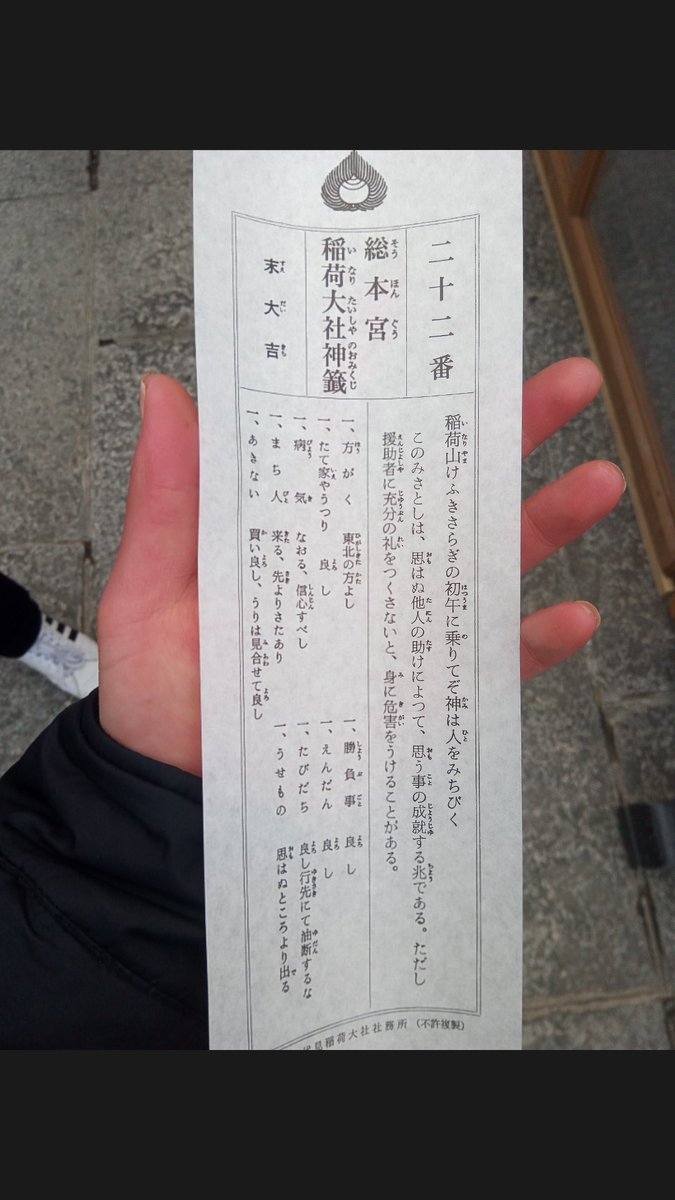 二十二番
総本宮
稲荷大社神籤
末大吉
稲荷山けふきさらぎの初午に乗りてぞ神は人をみちびく
このみさとしは、思はぬ他人の助けによつて、思う事の成就する兆である。ただし
援助者に充分の礼をつくさないと、身に危害をうけることがある。
一、方がく 東北の方よし
一、たて家やうつり 良し
一、病気 なおる、信心すべし
一、まち人 来る、先よりさたあり
一、あきない 買い良し、うりは見合せて良し
一、勝負事 良し
一、えんだん 良し
一、たびだち 良し行先にて油断するな
一、うせもの 思はぬところより出る
見稲荷大社社務所(不許複製)